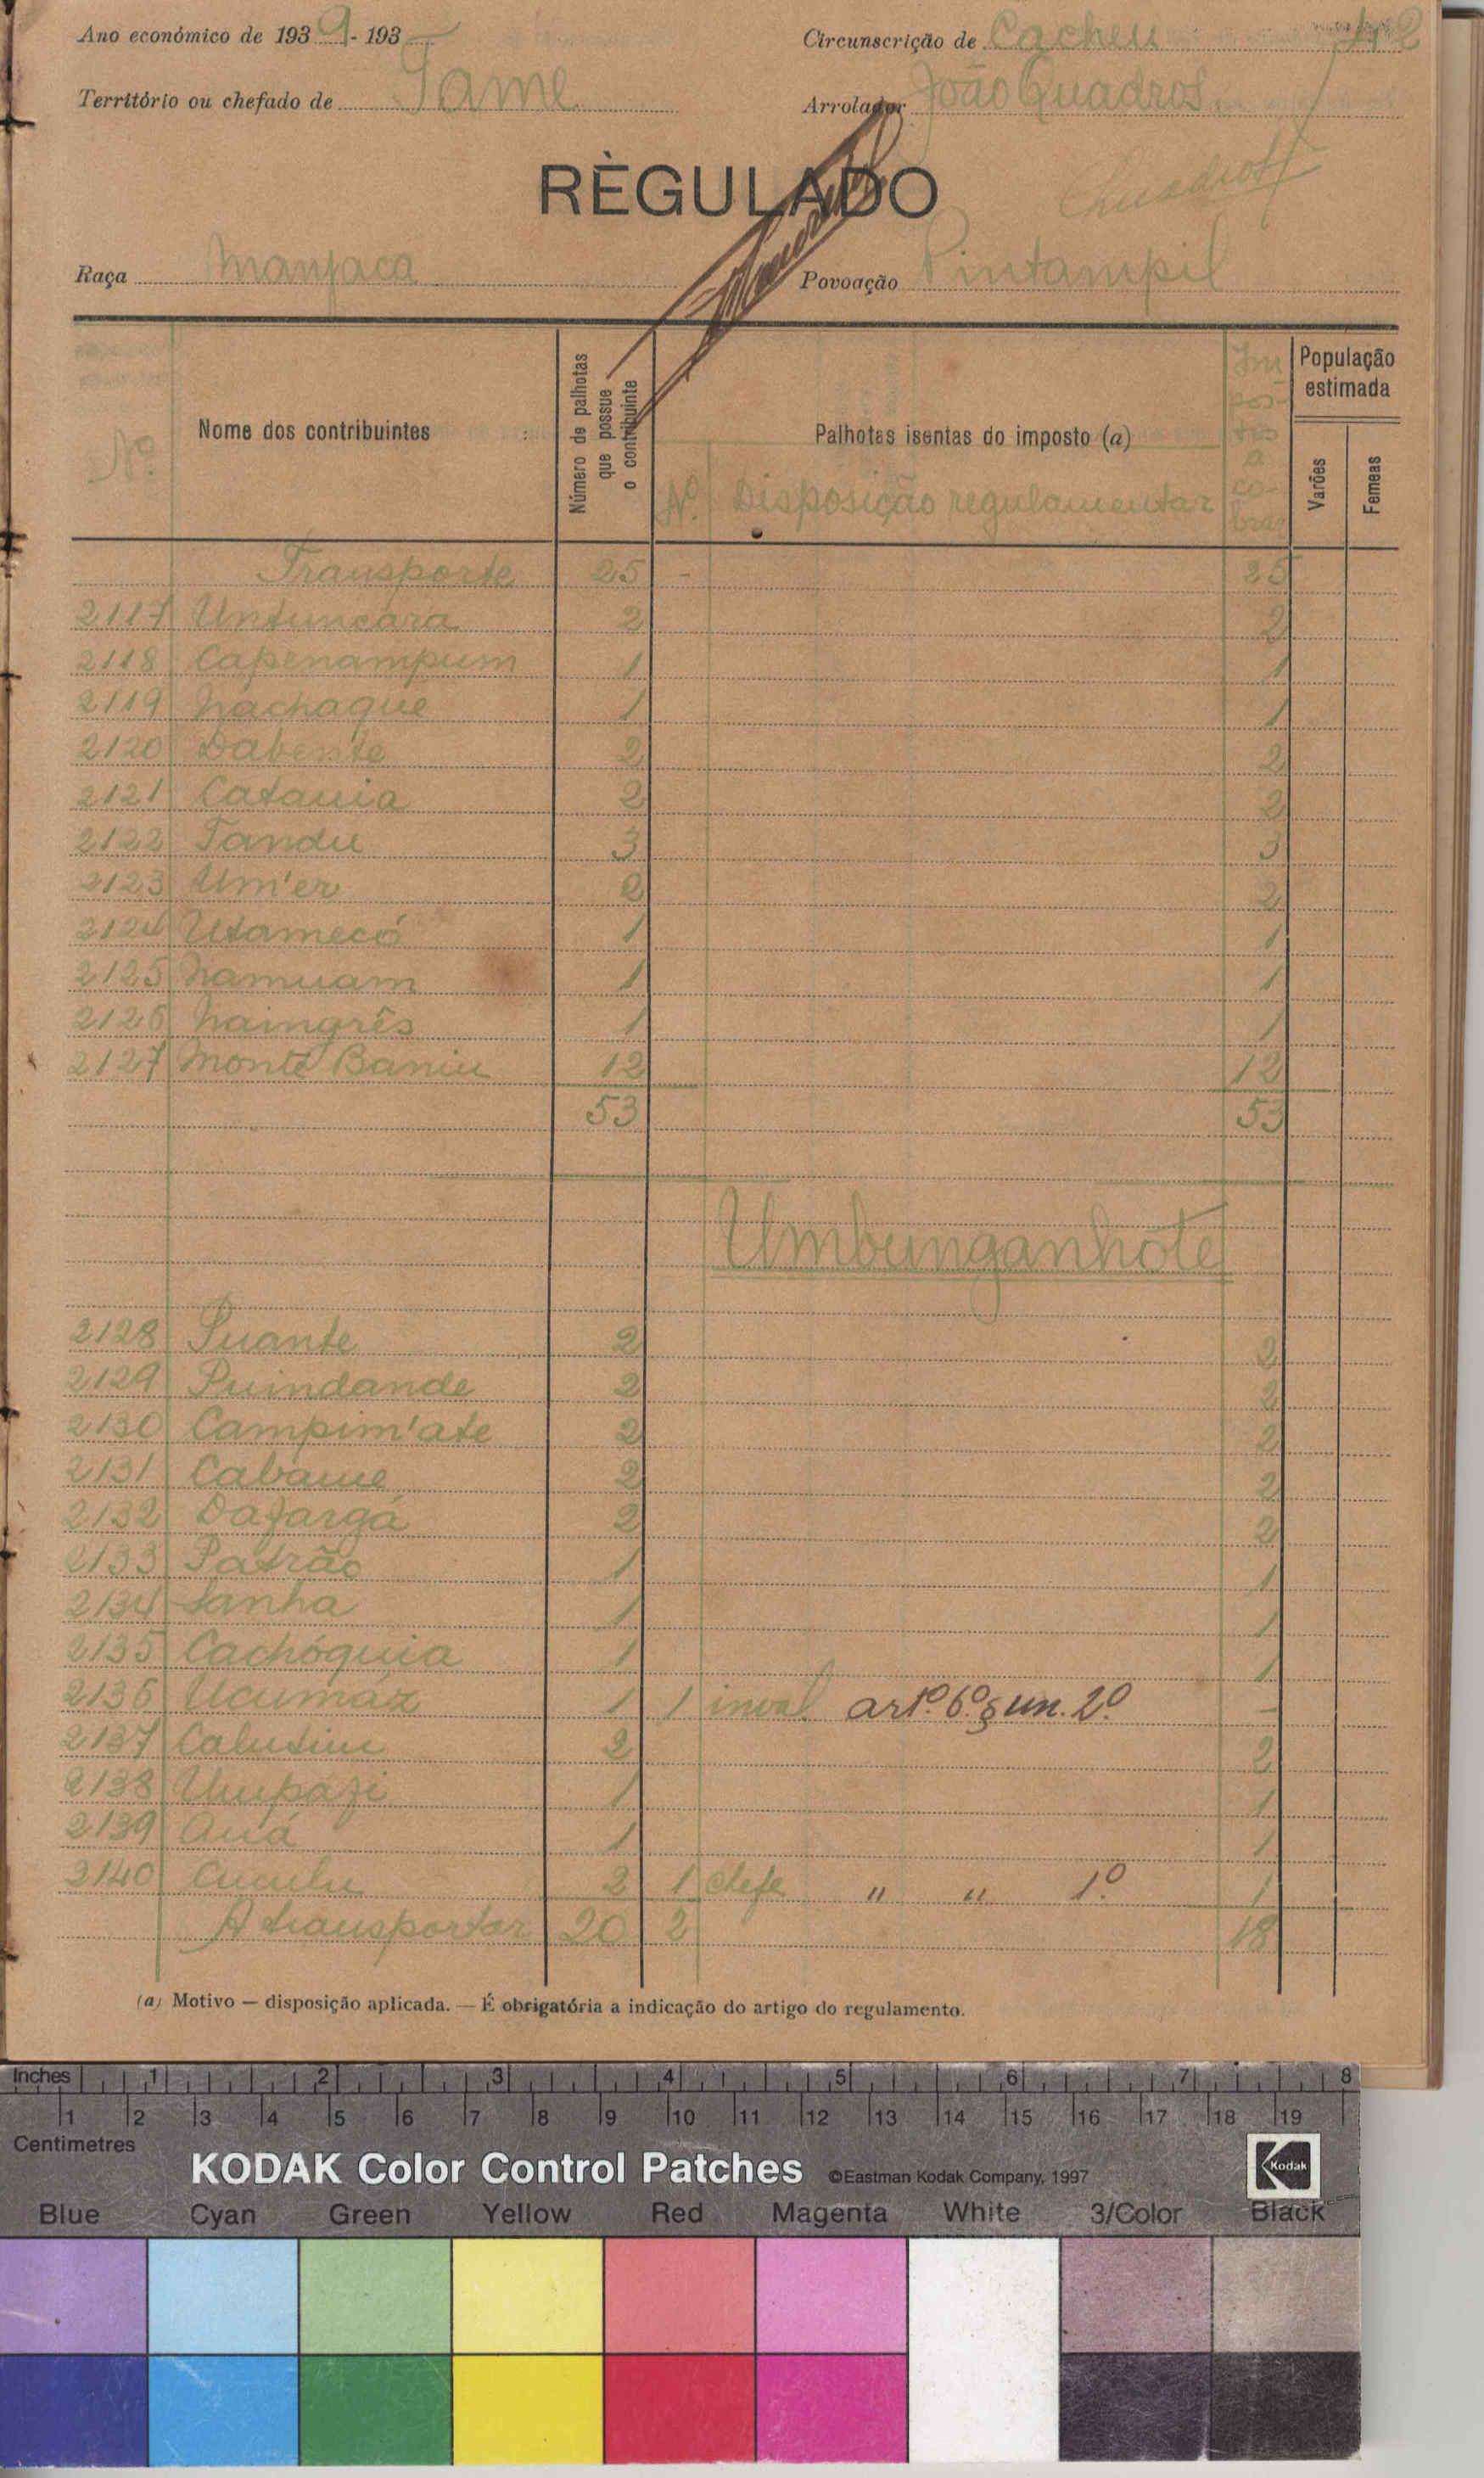 Ano económico de 1939 - 193 Circunscrição de Cacheu 42
Território ou chefado de Tame Arrolador João Quadros
RÈGULADO
Quadros
Raça Manjaca Povoação Pintampil
Nº Nome dos contribuintes Número de palhotas que possue o contribuinte Palhotas isentas do imposto (a) Im pos- tos a co- brar População estimada
Nº. Disposição regulamentar Varões Femeas
Transporte 25 - 25
2117 Untuncara 2 2
2118 Capenampum 1 1
2119 Nachaque 1 1
2120 Dabente 2 2
2121 Catauia 2 2
2122 Tandu 3 3
2123 Um'er 2 2
2124 Utamecó 1 1
2125 Namuam 1 1
2126 Naingrês 1 1
2127 Monte Baniu 12 12
53 53
Umbunganhote
2128 Puante 2 2
2129 Puindande 2 2
2130 Campim'ate 2 2
2131 Cabaue 2 2
2132 Dafargá 2 2
2133 Patrão 1 1
2134 Sanha 1 1
2135 Cachóquia 1 1
2136 Ucumáz 1 1 inval artº. 6º. § un. 2º -
2137 Calutiu 2 2
2138 Uupázi 1 1
2139 Auá 1 1
2140 Cuculu 2 1 chefe " " 1º 1
A transportar 20 2 18
(a) Motivo — disposição aplicada. — É obrigatória a indicação do artigo do regulamento.
Inches 1 2 3 4 5 6 7 8
1 2 3 4 5 6 7 8 9 10 11 12 13 14 15 16 17 18 19
Centimetres
KODAK Color Control Patches ©Eastman Kodak Company, 1997 Kodak
Blue Cyan Green Yellow Red Magenta White 3/Color Black